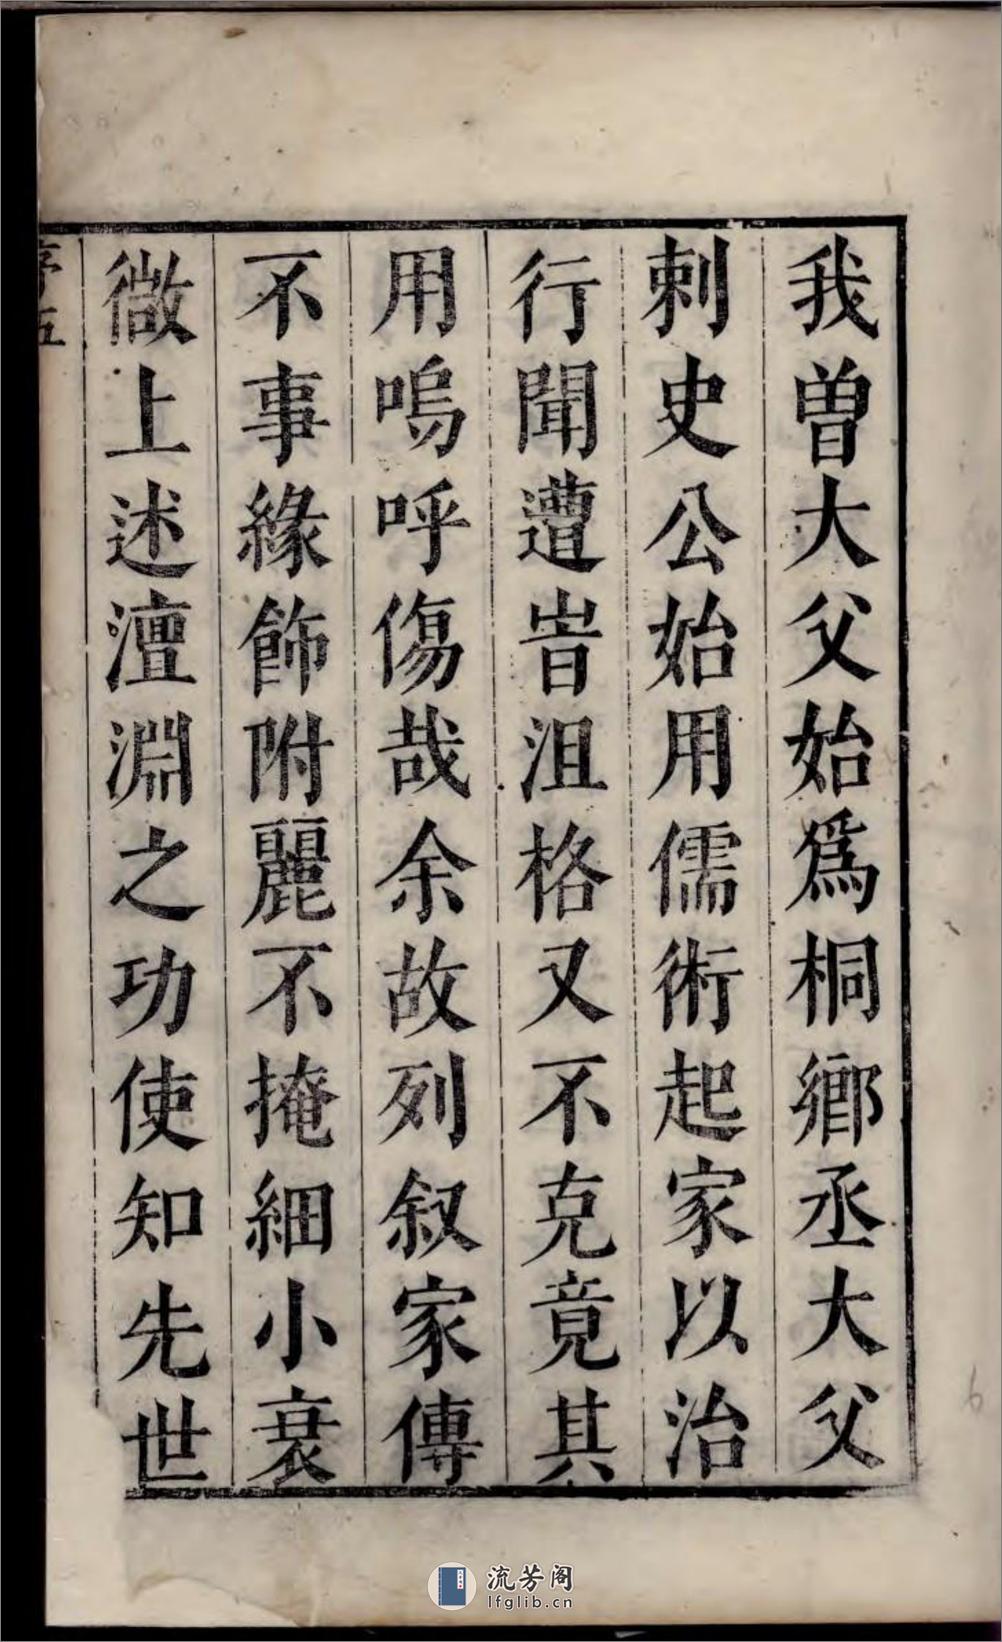 我曽大父始爲桐鄉丞大父
刺史公始用儒術起家以治
行聞遭旹沮格又不克竟其
用嗚呼傷哉余故列叙家傳
不事緣飾附麗不掩細小衰
微上述澶淵之功使知先世
序五
6
流芳阁
lfglib.cn